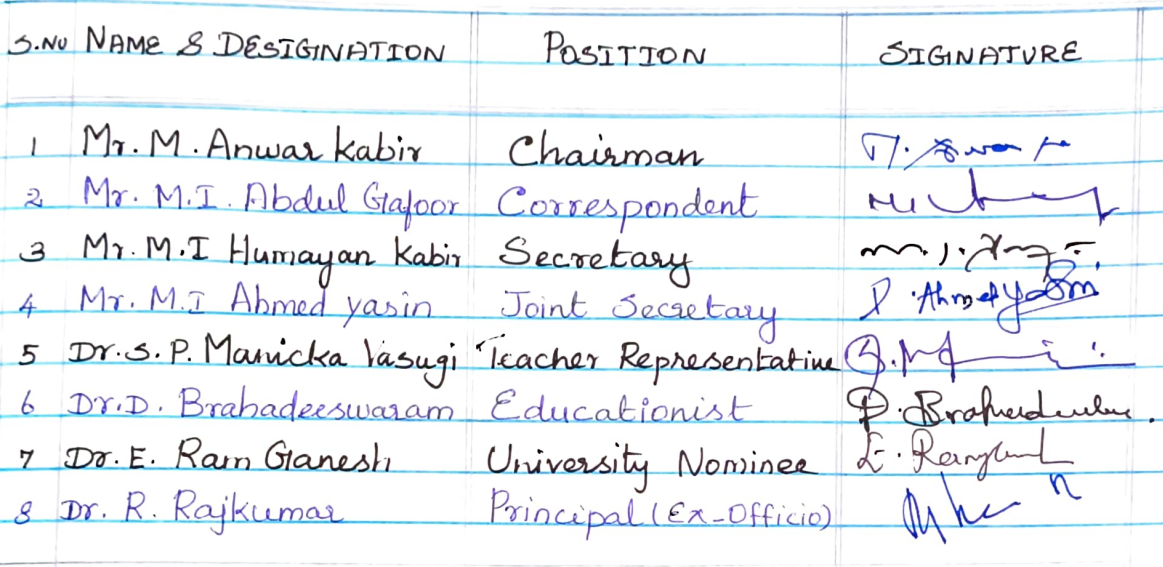 S.No NAME & DESIGINATION POSITION SIGINATURE
1 Mr. M. Anwar kabir Chairman
2 Mr. M.I. Abdul Gafoor Correspondent
3 Mr. M.I Humayan Kabir Secretary
4 Mr. M.I Ahmed yasin Joint Secretary Ahmed Yasin
5 Dr. S. P. Manicka Vasugi Teacher Representative
6 Dr. D. Brahadeeswaram Educationist
7 Dr. E. Ram Ganesh University Nominee
8 Dr. R. Rajkumar Principal (Ex-Officio)